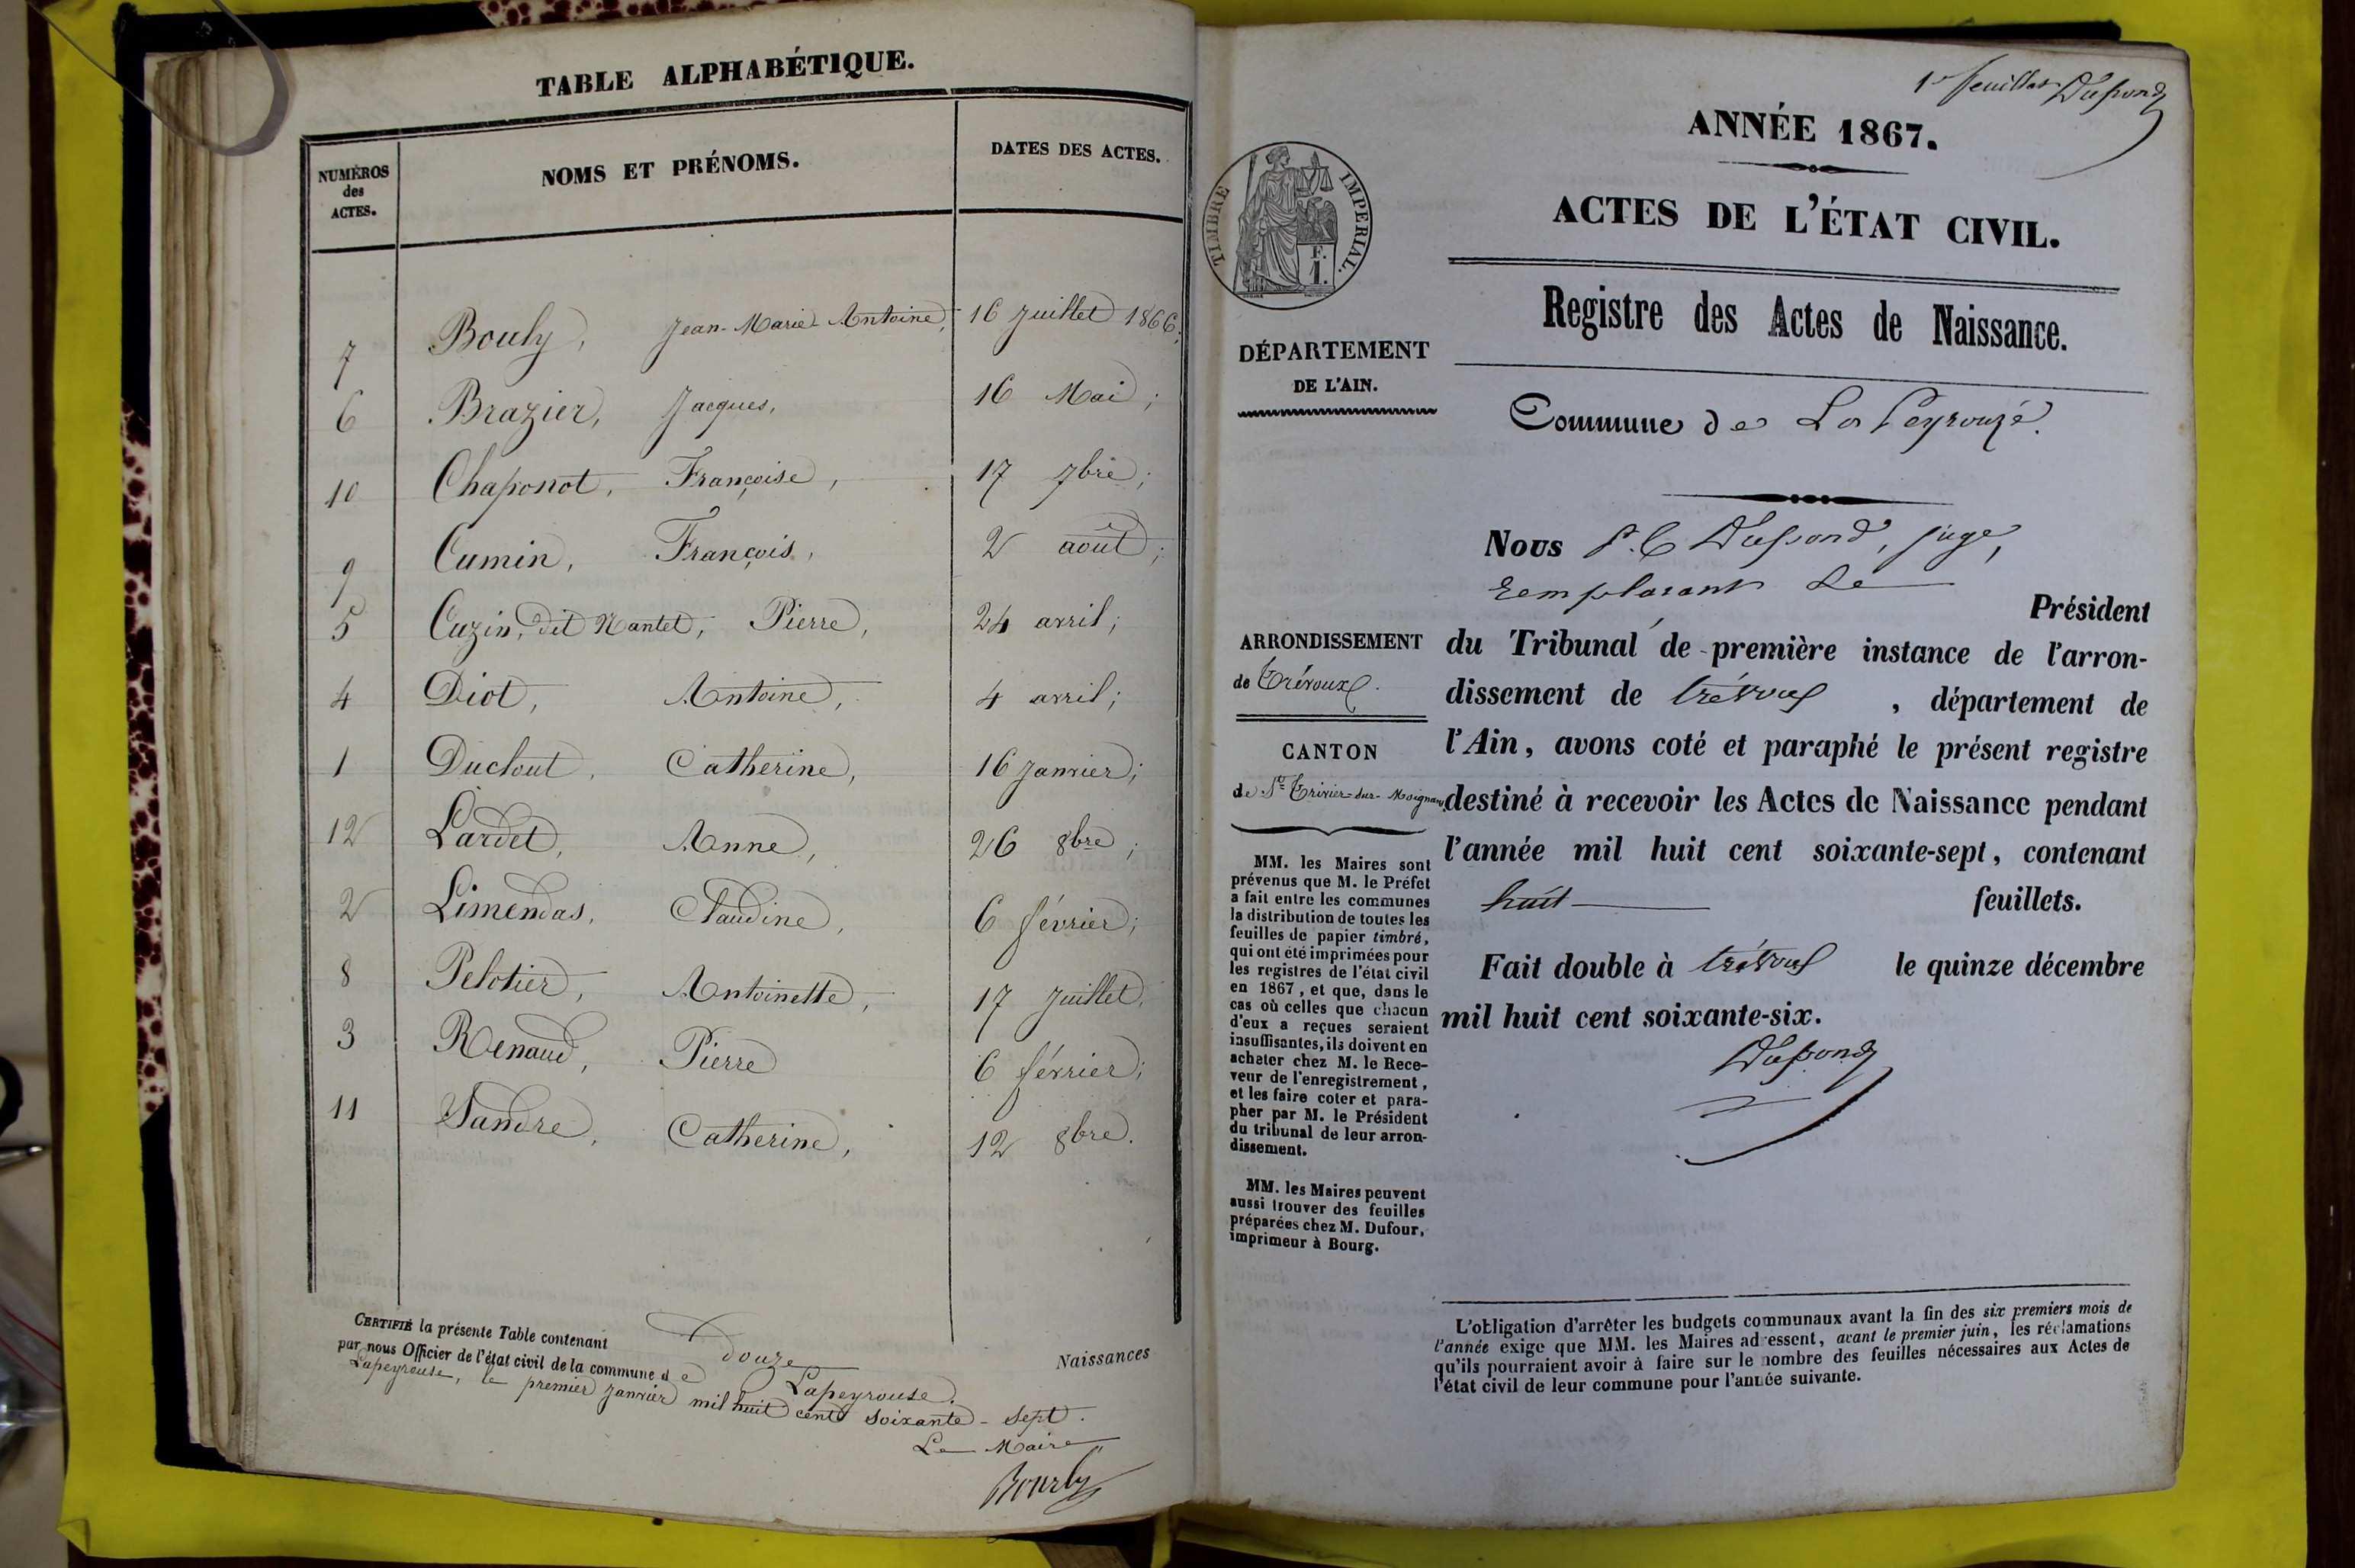 TABLE ALPHABÉTIQUE.
NUMÉROS des ACTES.
NOMS ET PRÉNOMS.
DATES DES ACTES.
7 Bouly, Jean-Marie-Antoine, 16 juillet 1866;
6 Brazier, Jacques, 16 Mai;
10 Chaponot, Françoise, 17 7bre;
9 Cumin, François, 2 août;
5 Cuzin, dit Nantet, Pierre, 24 avril;
4 Diot, Antoine, 4 avril;
1 Duclout, Catherine, 16 janvier;
12 Lardet, Anne, 26 8bre;
2 Limendas, Claudine, 6 février;
8 Pelotier, Antoinette, 17 juillet,
3 Renaud, Pierre 6 février;
11 Sandre, Catherine, 12 8bre.
CERTIFIÉ la présente Table contenant douze Naissances
par nous Officier de l'état civil de la commune de Lapeyrouse.
Lapeyrouse, le premier janvier mil huit cent soixante-sept.
Le Maire
Bourly
1er feuillet Dupond
ANNÉE 1867.
ACTES DE L'ÉTAT CIVIL.
Registre des Actes de Naissance.
TIMBRE IMPERIAL.
F.
1.
DÉPARTEMENT
DE L'AIN.
Commune de La Peyrouze.
Nous P. C Dupond, juge,
remplaçant le
Président
du Tribunal de première instance de l'arron-
dissement de trévoux, département de
l'Ain, avons coté et paraphé le présent registre
destiné à recevoir les Actes de Naissance pendant
l'année mil huit cent soixante-sept, contenant
huit feuillets.
Fait double à trévoux le quinze décembre
mil huit cent soixante-six.
Dupond
ARRONDISSEMENT
de Trévoux.
CANTON
de St Trivier-sur-Moignans
MM. les Maires sont
prévenus que M. le Préfet
a fait entre les communes
la distribution de toutes les
feuilles de papier timbré,
qui ont été imprimées pour
les registres de l'état civil
en 1867, et que, dans le
cas où celles que chacun
d'eux a reçues seraient
insuffisantes, ils doivent en
acheter chez M. le Rece-
veur de l'enregistrement,
et les faire coter et para-
pher par M. le Président
du tribunal de leur arron-
dissement.
MM. les Maires peuvent
aussi trouver des feuilles
préparées chez M. Dufour,
imprimeur à Bourg.
L'obligation d'arrêter les budgets communaux avant la fin des six premiers mois de
l'année exige que MM. les Maires adressent, avant le premier juin, les réclamations
qu'ils pourraient avoir à faire sur le nombre des feuilles nécessaires aux Actes de
l'état civil de leur commune pour l'année suivante.